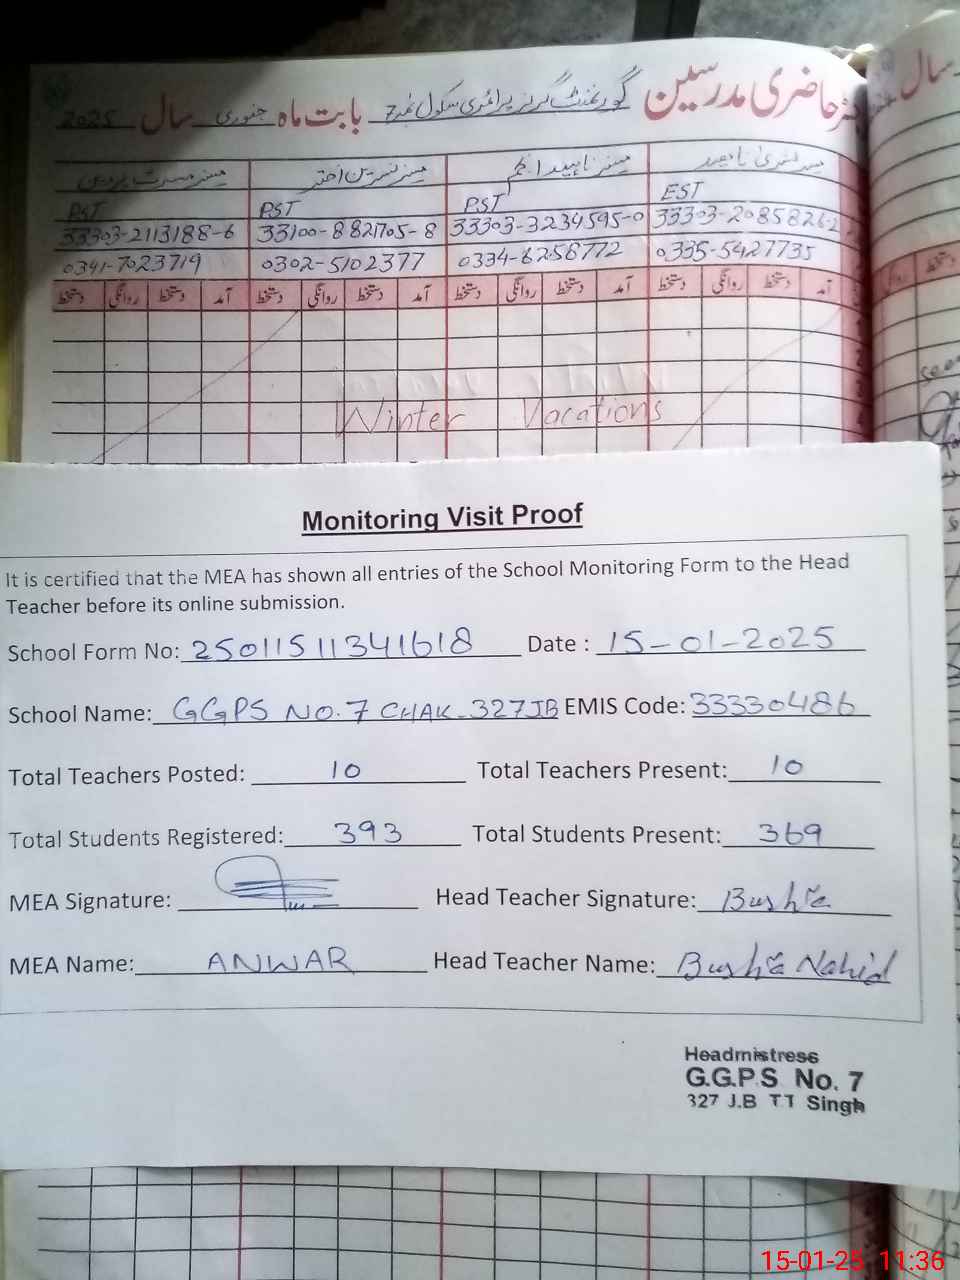 حاضری مدرسین گورنمنٹ گرلز پرائمری سکول نمبر 7 بابت ماہ جنوری سال 2025
سال
مسز بشریٰ ناہید مسز ناہید انجم مسز نسرین اختر مسز مسرت پروین
EST PST PST PST
33303-2113188-6 33100-8821705-8 33303-3234595-0 33303-2085826-2
0341-7023719 0302-5102377 0334-6258772 0335-5427735
آمد دستخط روانگی دستخط آمد دستخط روانگی دستخط آمد دستخط روانگی دستخط آمد دستخط روانگی دستخط
Winter Vacations
Monitoring Visit Proof
It is certified that the MEA has shown all entries of the School Monitoring Form to the Head
Teacher before its online submission.
School Form No: 25011511341618 Date : 15-01-2025
School Name: GGPS NO.7 CHAK-327JB EMIS Code: 33330486
Total Teachers Posted: 10 Total Teachers Present: 10
Total Students Registered: 393 Total Students Present: 369
MEA Signature: Head Teacher Signature: Bushra
MEA Name: ANWAR Head Teacher Name: Bushra Nahid
Headmistress
G.G.P.S No. 7
327 J.B T.T Singh
15-01-25 11:36